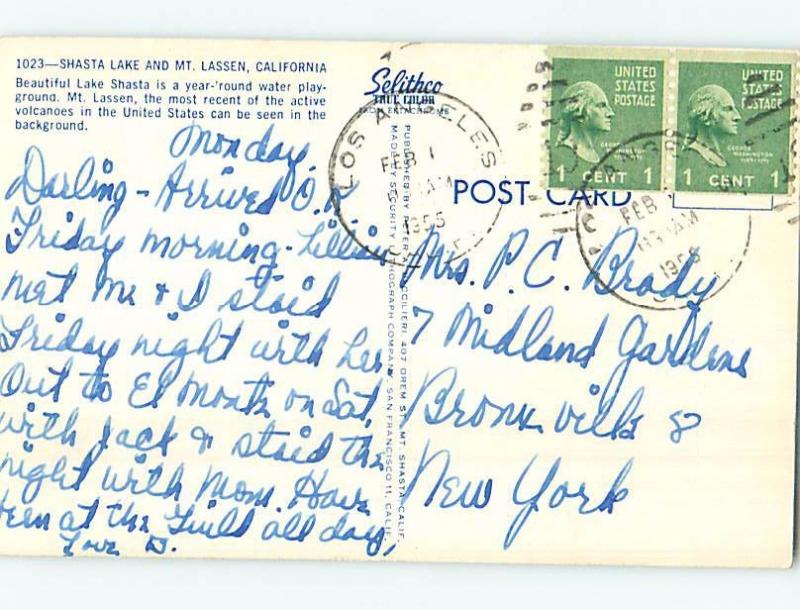 1023—SHASTA LAKE AND MT. LASSEN, CALIFORNIA
Beautiful Lake Shasta is a year-'round water play-
ground. Mt. Lassen, the most recent of the active
volcanoes in the United States can be seen in the
background.
Monday,
Darling - Arrived O.K.
Friday morning - Lillian
met me & I staid
Friday night with her.
Out to El Monte on Sat.
with Jack & staid the
night with Mom. Have
been at the Guild all day,
Love D.
Selithco
TRUE COLOR
FROM EKTACHROMES
PUBLISHED BY PETER 407 OREM ST., MT. SHASTA, CALIF.
MADE BY SECURITY LITHOGRAPH COMPANY, SAN FRANCISCO 11, CALIF.
LOS ANGELES
FEB 1
AM
1955
UNITED
STATES
POSTAGE
GEORGE
WASHINGTON
1 CENT 1
UNITED
STATES
POSTAGE
GEORGE
WASHINGTON
1 CENT 1
FEB
AM
195
POST CARD
Mrs. P. C. Brady
7 Midland Gardens
Bronxville 8
New York